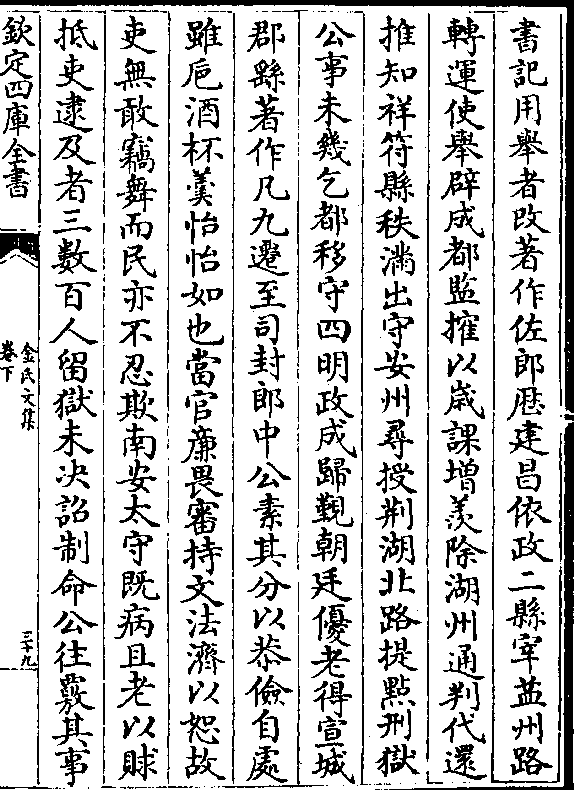 書記用舉者改著作佐郎歴建昌依政二縣宰益州路
轉運使舉辟成都監㩁以歳課增羨除湖州通判代還
推知祥符縣秩滿出守安州尋授荆湖北路提㸃刑獄
公事未幾乞都移守四明政成歸覲朝廷優老得宣城
郡縣著作凡九遷至司封郎中公素其分以恭儉自處
雖巵酒杯羮怡怡如也當官廉畏審持文法濟以恕故
吏無敢竊舞而民亦不忍欺南安太守既病且老以賕
抵吏逮及者三數百人留獄未决詔制命公往覈其事
欽定四庫全書
金氏文集
卷下
三十九